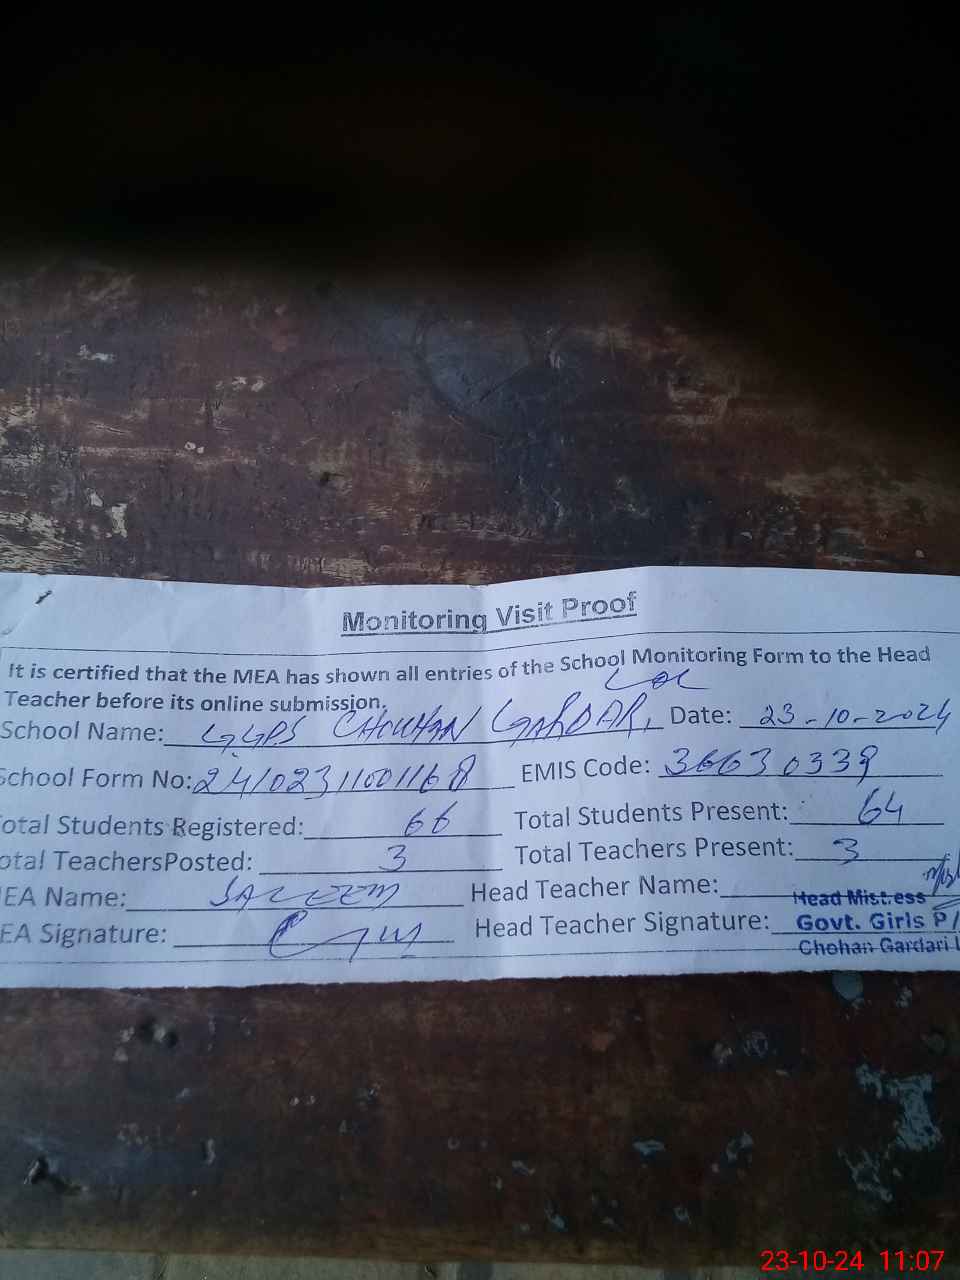 Monitoring Visit Proof
It is certified that the MEA has shown all entries of the School Monitoring Form to the Head
Teacher before its online submission.
School Name: GGPS CHOUHAN GARDARI Date: 23-10-2024
School Form No: 24102311001168 EMIS Code: 36630339
otal Students Registered: 66 Total Students Present: 64
otal TeachersPosted: 3 Total Teachers Present: 3
EA Name: SALEEM Head Teacher Name:
Head Mistress
EA Signature: Head Teacher Signature: Govt. Girls P/
Chohan Gardari
23-10-24 11:07